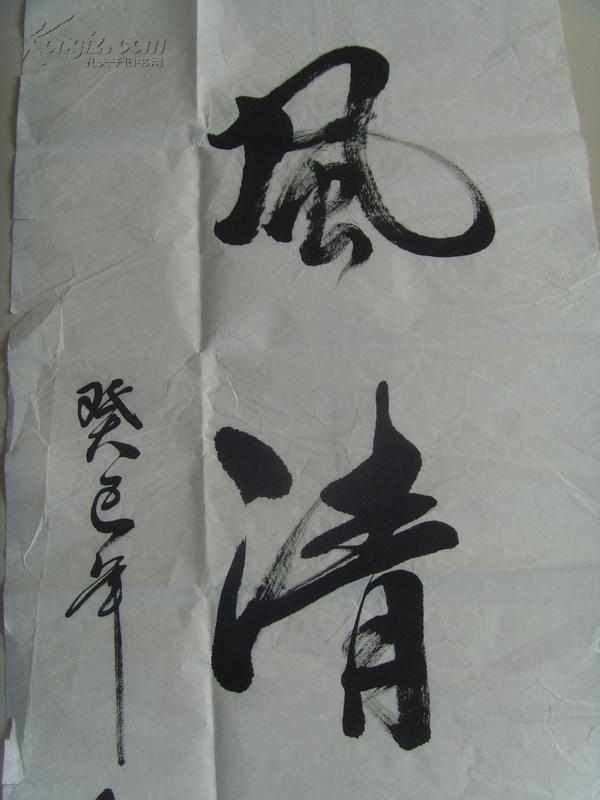 風清
癸巳年
Kongfz.com
孔夫子旧书网